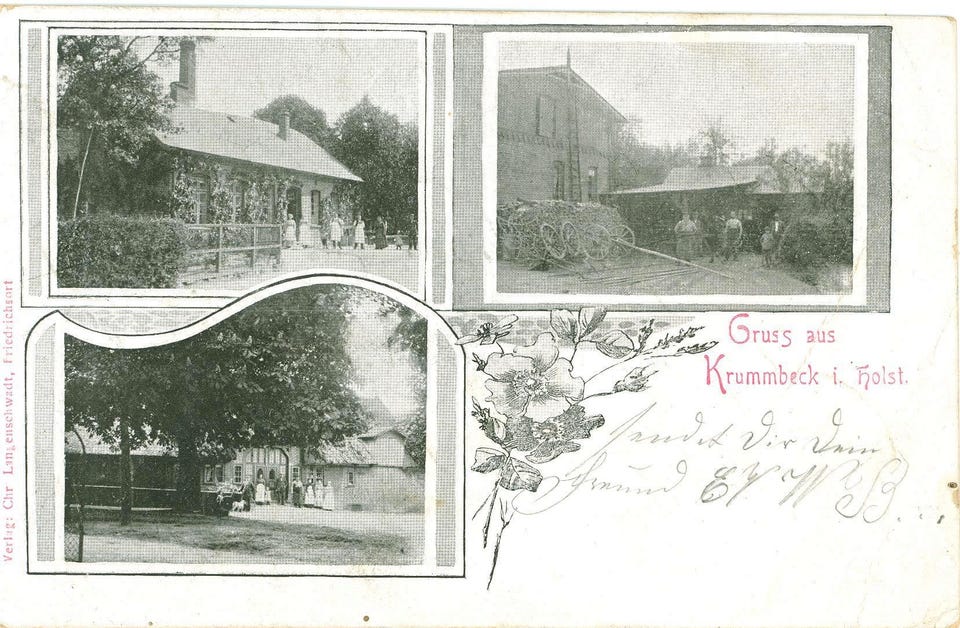 Gruss aus
Krummbeck i. Holst.
sendet Dir Dein
Freund
Verlag: Chr. Langenschwadt, Friedrichsort